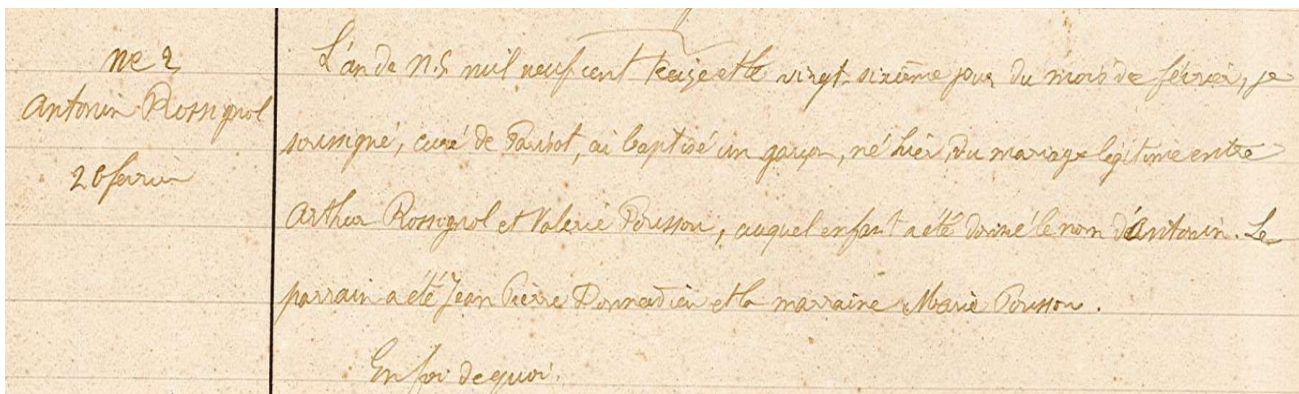 ne 2
Antonin Rossignol
26 fevrier
L'an de N.S. mil neuf cent treize et le vingt-sixième jour du mois de février, je
soussigné, curé de Parisot, ai baptisé un garçon, né hier, du mariage légitime entre
Arthur Rossignol et Valerie Pousson, auquel enfant a été donné le nom d'Antonin. Le
parrain a été Jean Pierre Donnadieu et la marraine Marie Pousson.
En foi de quoi.